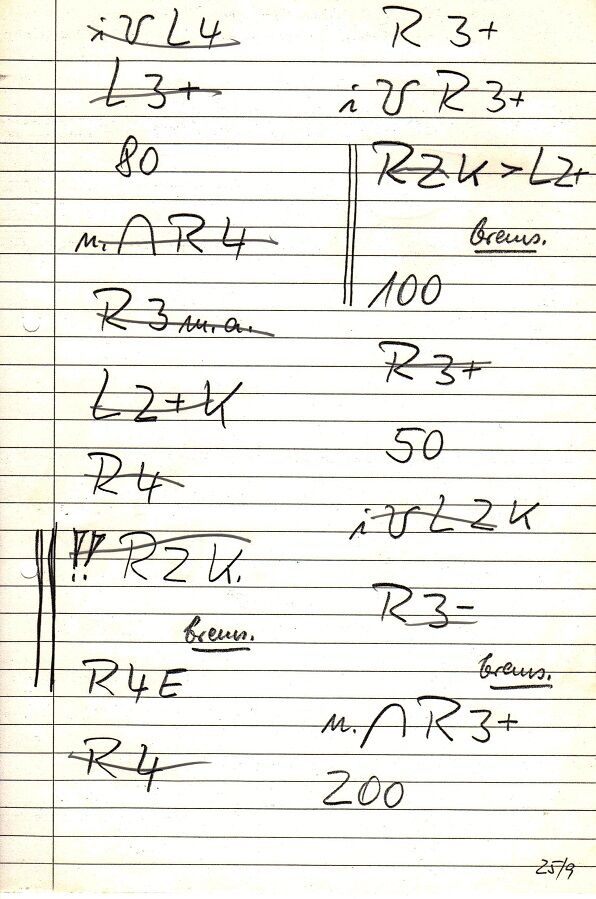 i ʊ L4
L3+
80
n. ∩ R4
R3 m.a.
L2+K
R4
!! R2K.
brems.
R4E
R4
R3+
i ʊ R3+
R2K > L2+
brems.
100
R3+
50
i ʊ L2K
R3-
brems.
n. ∩ R3+
200
25/9